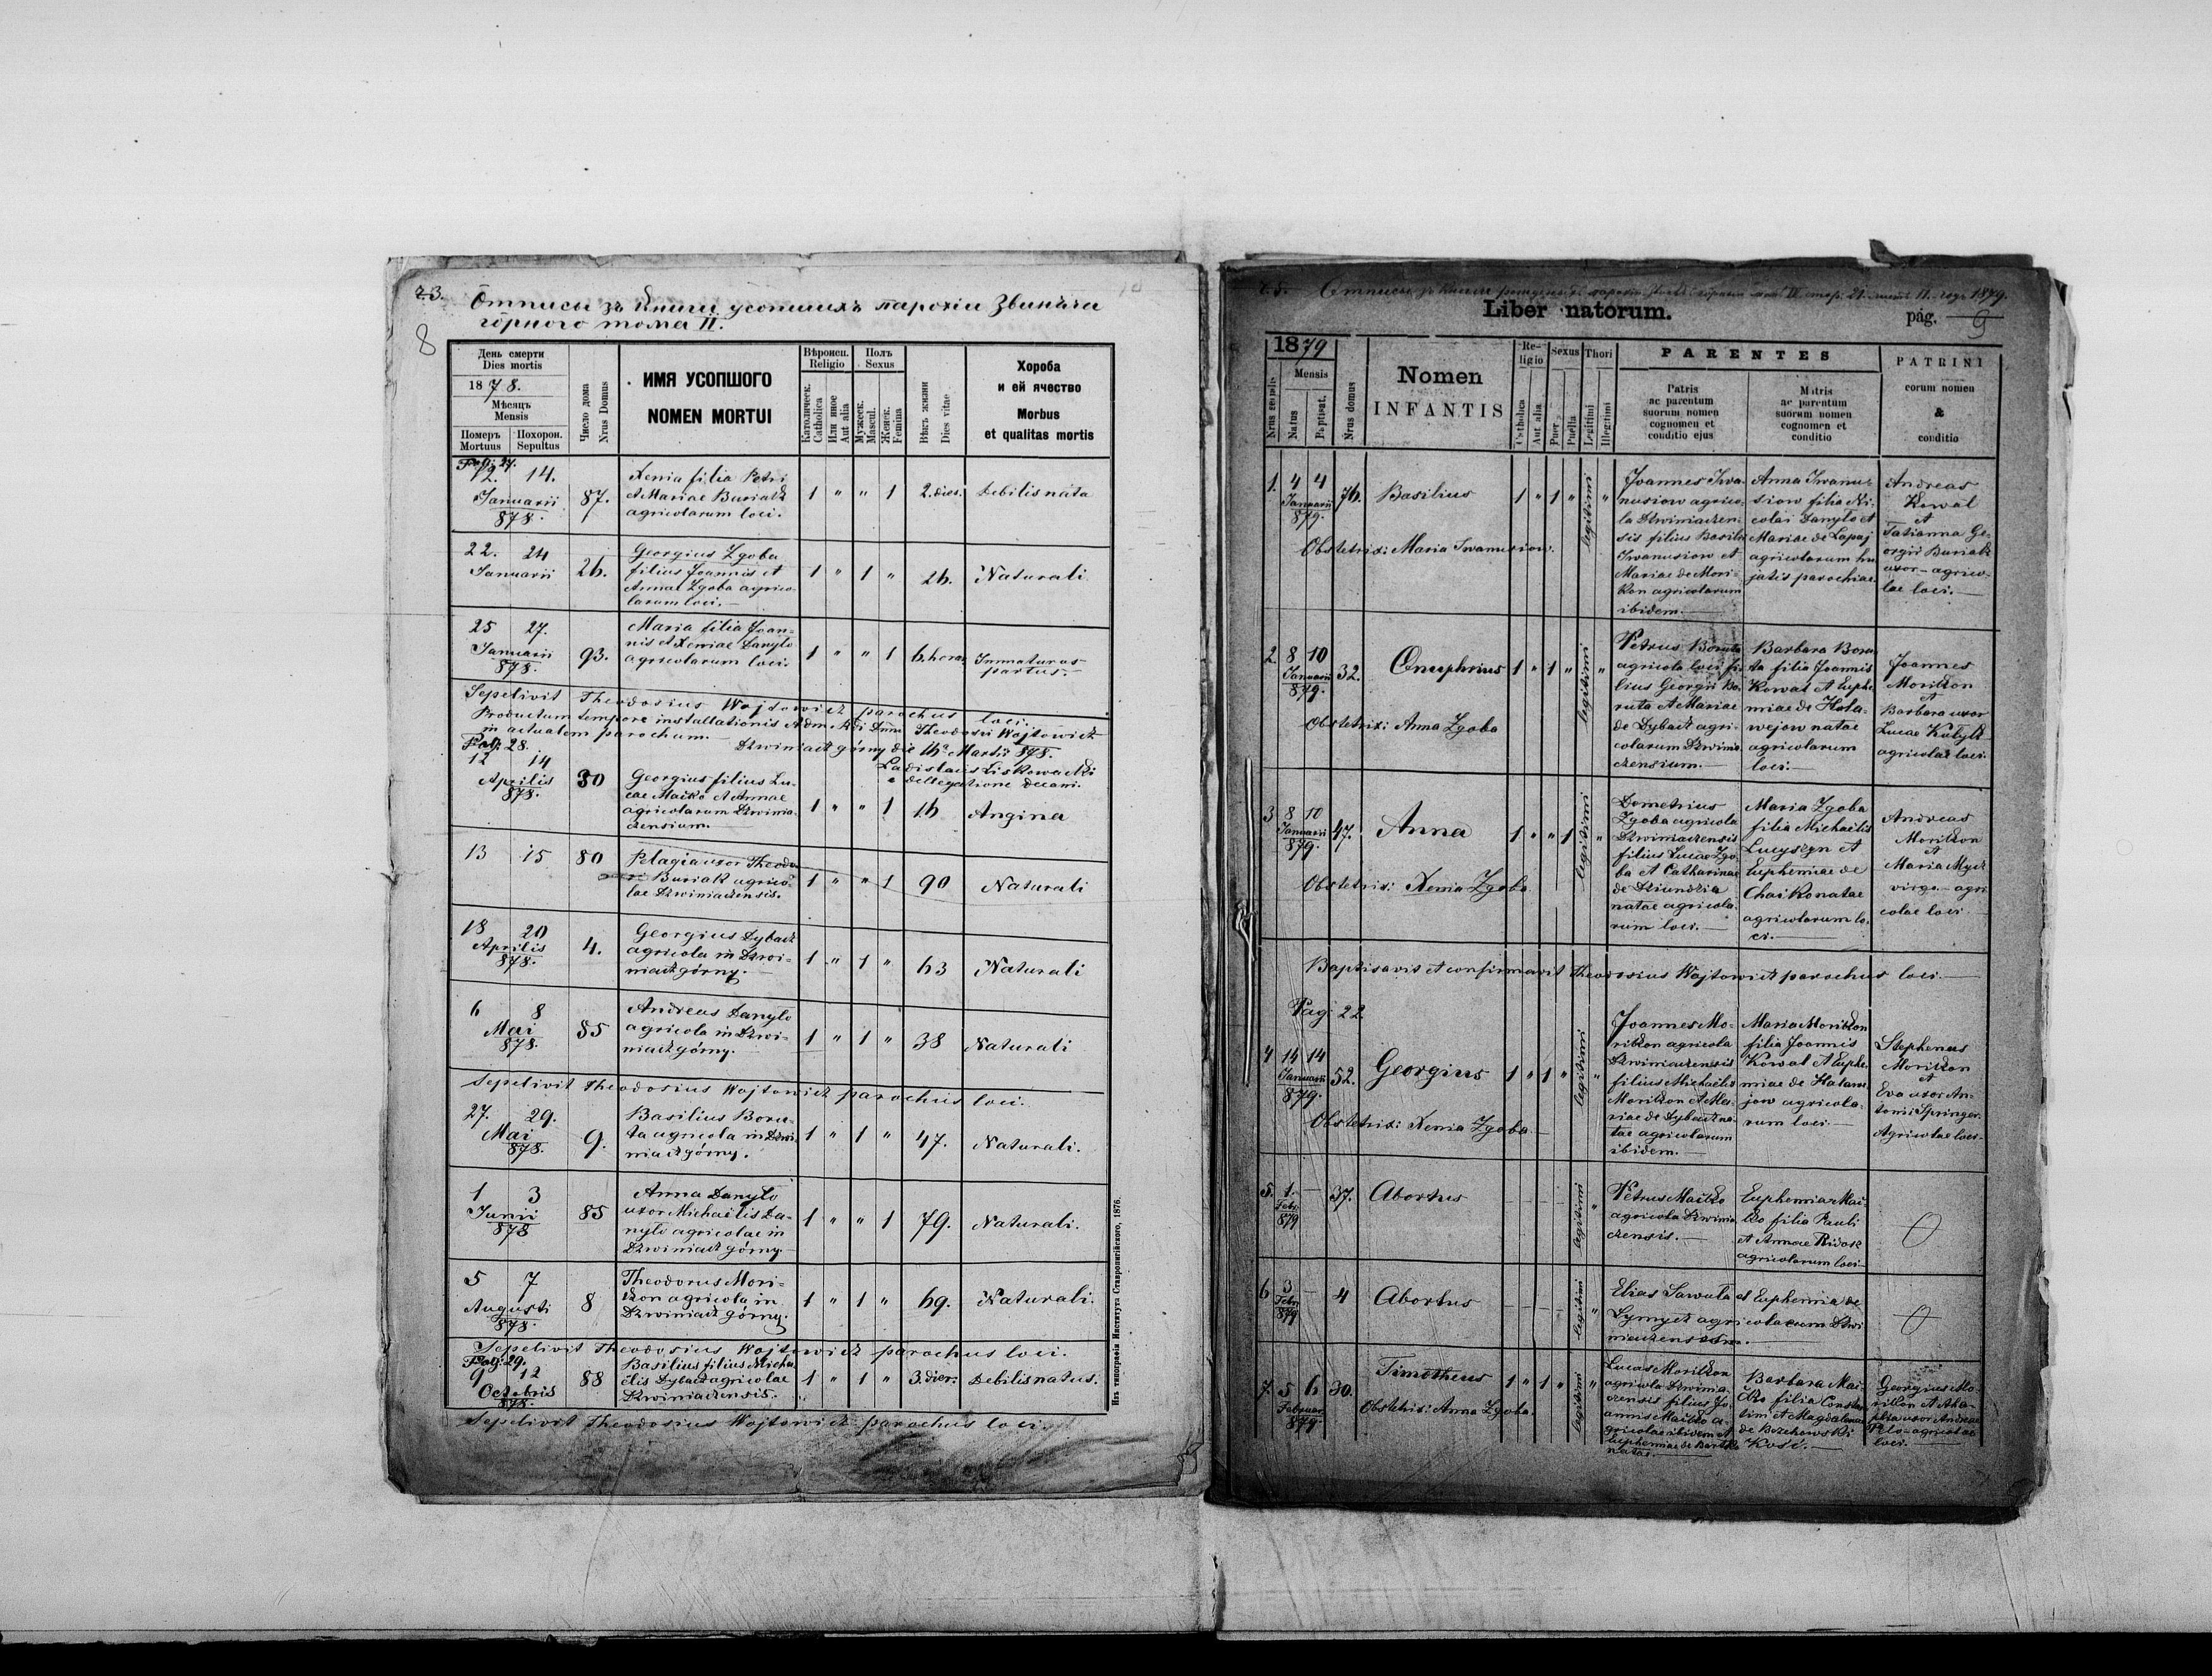 Отписи зъ Книги усопшихъ парохіи Звиняча
горного тома II.
8
День смерти
Dies mortis
1878.
Мѣсяцъ
Mensis
Померъ
Mortuus
Похорон.
Sepultus
Число дома
Nrus Domus
ИМЯ УСОПШОГО
NOMEN MORTUI
Вѣроисп.
Religio
Католическ.
Catholica
Или иное
Aut alia
Полъ
Sexus
Мужеск.
Mascul.
Женск.
Femina
Вѣкъ жизни
Dies vitae
Хороба
и ей ячество
Morbus
et qualitas mortis
Pag. 27.
12. 14.
Januarii
878.
87.
Xenia filia Petri
et Mariae Buriak
agricolarum loci.
1 " " 1
2. dies.
Debilis nata
22. 24
Januarii
26.
Georgius Zgoba
filius Joannis et
Annae Zgoba agrico-
larum loci.
1 " 1 "
26.
Naturali
25 27.
Januarii
878.
93.
Maria filia Joan-
nis et Xeniae Danyło
agricolarum loci.
1 " " 1
6. horas
Immaturus
partus.
Sepelivit Theodosius Wojtowicz parochus loci.
Productum tempore installationis Adm. Rdi Dmni Theodosii Wojtowicz
in actualem parochum.
Dzwiniacz górny die 16a Martii 878.
Ladislaus Liskowacki
e delegatione Decani.
Pag. 28.
12 14
Aprilis
878.
30
Georgius filius Lu-
cae Maiko et Annae
agricolarum Dzwinia-
czensium.
1 " " 1
16
Angina
13 15
80
Pelagia uxor Theodo-
Buriak agrico-
lae Dzwiniaczensis.
1 " " 1
90
Naturali
18 20
Aprilis
878.
4.
Georgius Dybacz
agricola in Dzwi-
niacz górny.
1 " 1 "
63
Naturali
6 8
Mai
878.
85
Andreas Danyło
agricola in Dzwi-
niacz górny.
1 " 1 "
38
Naturali
Sepelivit Theodosius Wojtowicz parochus loci.
27. 29.
Mai
878.
9.
Basilius Boru-
ta agricola in Dzwi-
niacz górny.
1 " 1 "
47.
Naturali.
1 3
Junii
878
85
Anna Danyło
uxor Michaelis Da-
nyło agricolae in
Dzwiniacz górny
1 " " 1
79.
Naturali.
5 7
Augusti
878.
8
Theodorus Mori-
kon agricola in
Dzwiniacz górny.
1 " 1 "
69.
Naturali.
Sepelivit Theodosius Wojtowicz parochus loci.
Pag. 29.
9 12
Octobris
878.
88
Basilius filius Micha-
elis Dybacz agricolae
Dzwiniaczensis.
1 " 1 "
3. dier.
Debilis natus.
Sepelivit Theodosius Wojtowicz parochus loci.
Изъ типографіи Института Ставропигійского, 1876.
1879.
Liber natorum.
pág. 9
1879
Mensis
Natus
Baptisat.
Nrus domus
Nomen
INFANTIS
Re-
ligio
Catholica
Aut alia
Sexus
Puer
Puella
Thori
Legitimi
Illegitimi
PARENTES
Patris
ac parentum
suorum nomen
cognomen et
conditio ejus
Matris
ac parentum
suorum nomen
cognomen et
conditio
PATRINI
eorum nomen
&
conditio
1. 4 4
Januarii
879.
76.
Basilius
1 " 1 "
legitimi
"
Joannes Iwa-
nusiow agrico-
la Dzwiniaczen-
sis filius Basilii
Iwanusiow et
Mariae de Mori-
kon agricolarum
ibidem.
Anna Iwanu-
siow filia Ni-
colai Danyło et
Mariae de Łapaj
agricolarum hu
jatis parochiae
Andreas
Kowal
et
Tatianna Ge-
orgii Buriak
uxor - agrico-
lae loci.
Obstetrix: Maria Iwanusiow.
2. 8 10
Januarii
879.
32.
Onuphrius
1 " 1 "
legitimi
"
Petrus Boruta
agricola loci fi-
lius Georgii Bo-
ruta et Mariae
de Dybacz agri-
colarum Dzwinia-
czensium.
Barbara Boru
ta filia Joannis
Kowal et Euphe-
miae de Hoła-
wejow natae
agricolarum
loci.
Joannes
Morikon
et
Barbara uxor
Lucae Kobylk
agricolae loci.
Obstetrix: Anna Zgoba
3 8 10
Januarii
879.
47.
Anna
1 " " 1
legitimi
"
Demetrius
Zgoba agricola
Dzwiniaczensis
filius Lucae Zgo-
ba et Catharinae
de Dziundzia
natae agricola-
rum loci.
Maria Zgoba
filia Michaelis
Łucyszyn et
Euphemiae de
Chaiko natae
agricolarum lo-
ci.
Andreas
Morikon
et
Maria Mycz
virgo - agri
colae loci
Obstetrix: Xenia Zgoba
Baptisavit et confirmavit Theodosius Wojtowicz parochus loci.
Pag. 22
4 14 14
Januarii
879.
52.
Georgius
1 " 1 "
legitimi
"
Joannes Mo-
rikon agricola
Dzwiniaczensis
filius Michaelis
Morikon et Ma-
riae de Dybacz na-
tae agricolarum
ibidem.
Maria Morikon
filia Joannis
Kowal et Euphe-
miae de Haławe-
jow agricola-
rum loci.
Stephanus
Morikon
et
Eva uxor An-
tonii Springer.
Agricolae loci.
Obstetrix: Xenia Zgoba
5. 1.
Febr.
879
37.
Abortus
legitimi
"
Petrus Maiko
agricola Dzwinia
czensis.
Euphemia Mai-
ko filia Pauli
et Annae Ridosz
agricolarum loci
6 3
Febr.
879
4
Abortus
legitimi
"
Elias Sawuła et Euphemia de
Dymycz agricolarum Dzwi
niaczensium.
7. 5 6
Februar.
879
30.
Timotheus
1 " 1 "
legitimi
"
Lucas Morikon
agricola Dzwinia-
czensis filius Jo-
annis Maiko a-
gricolae ibidem et
Euphemiae de Bartko
natae.
Barbara Mai-
ko filia Constan-
tini et Magdalenae
de Brzehowski
Kość.
Georgius Mo-
rikon et Aha-
phia uxor Andreae
Pelo - agricolae
loci.
Obstetrix: Anna Zgoba.